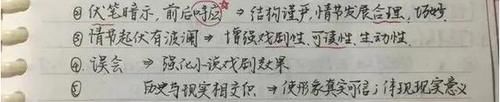 ② 伏笔暗示，前后呼应 ⇒ 结构谨严，情节发展合理、巧妙
③ 情节起伏有波澜 ⇒ 增强戏剧性、可读性、生动性
④ 误会 ⇒ 强化小说戏剧效果
⑤ 历史与现实相交织 ⇒ 使形象真实可信；体现现实意义